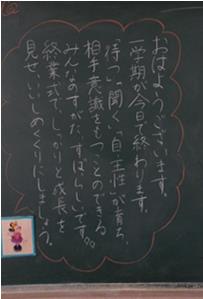 おはようございます。
一学期が今日で終わります。
「待つ」「聞く」「自主性」が育ち、
相手意識をもつことのできる
みんなのすがた、すばらしいです。
終業式でしっかりと成長を
見せ、いいしめくくりにしましょう。